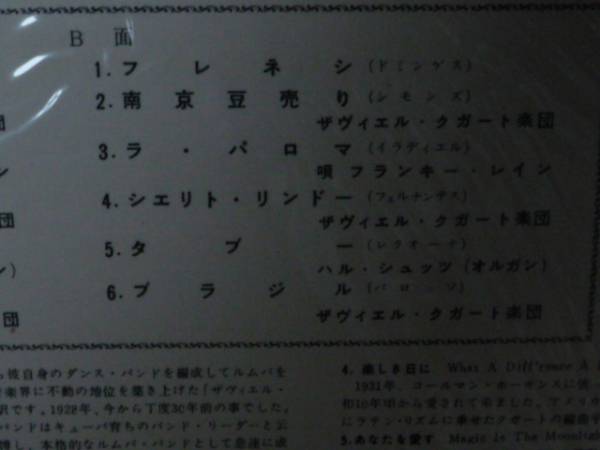 B 面
1. フレネシ (ドミンゲス)
2. 南京豆売り (シモンズ)
ザヴィエル・クガート楽団
3. ラ・パロマ (イラディエル)
唄 フランキー・レイン
4. シエリト・リンドー (フェルナンデス)
ザヴィエル・クガート楽団
5. タブー (レクオーナ)
ハル・シュッツ (オルガン)
6. ブラジル (バローソ)
ザヴィエル・クガート楽団
団
ン
団
ン)
団
彼自身のダンス・バンドを編成してルムバを
楽界に不動の地位を築き上げた「ザヴィエル・
訳です。1928年、今から丁度30年前の事でした。
バンドはキューバ育ちのバンド・リーダーと云
し、本格的なルムバ・バンドとして急速に成
4. 楽しき日に What A Diff'rence A
1931年、コールマン・ホーキンスに
和10年頃から愛されて来ました。アメリカ
にラテン・リズムに乗せたクガートの編曲
5. あなたを愛す Magic Is The Moonlight